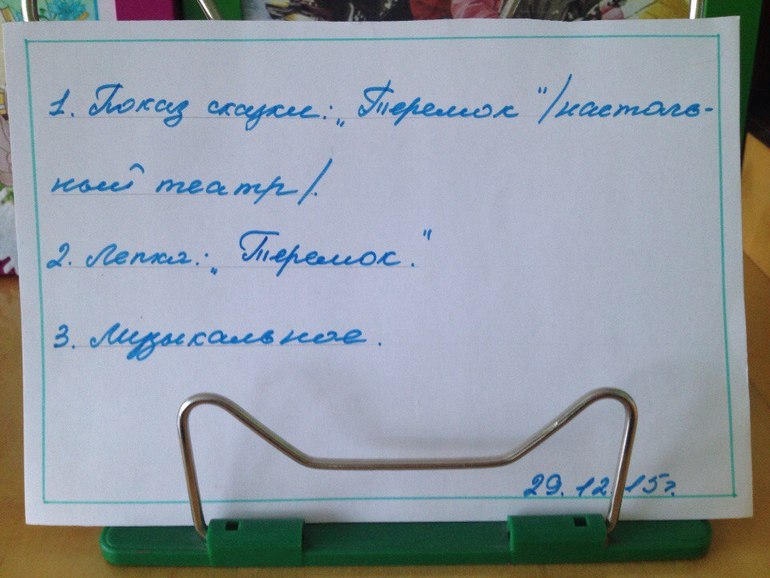 1. Показ сказки: „Теремок"/настоль-
ный театр/.
2. Лепка: „Теремок."
3. Музыкальное.
29.12.15г.